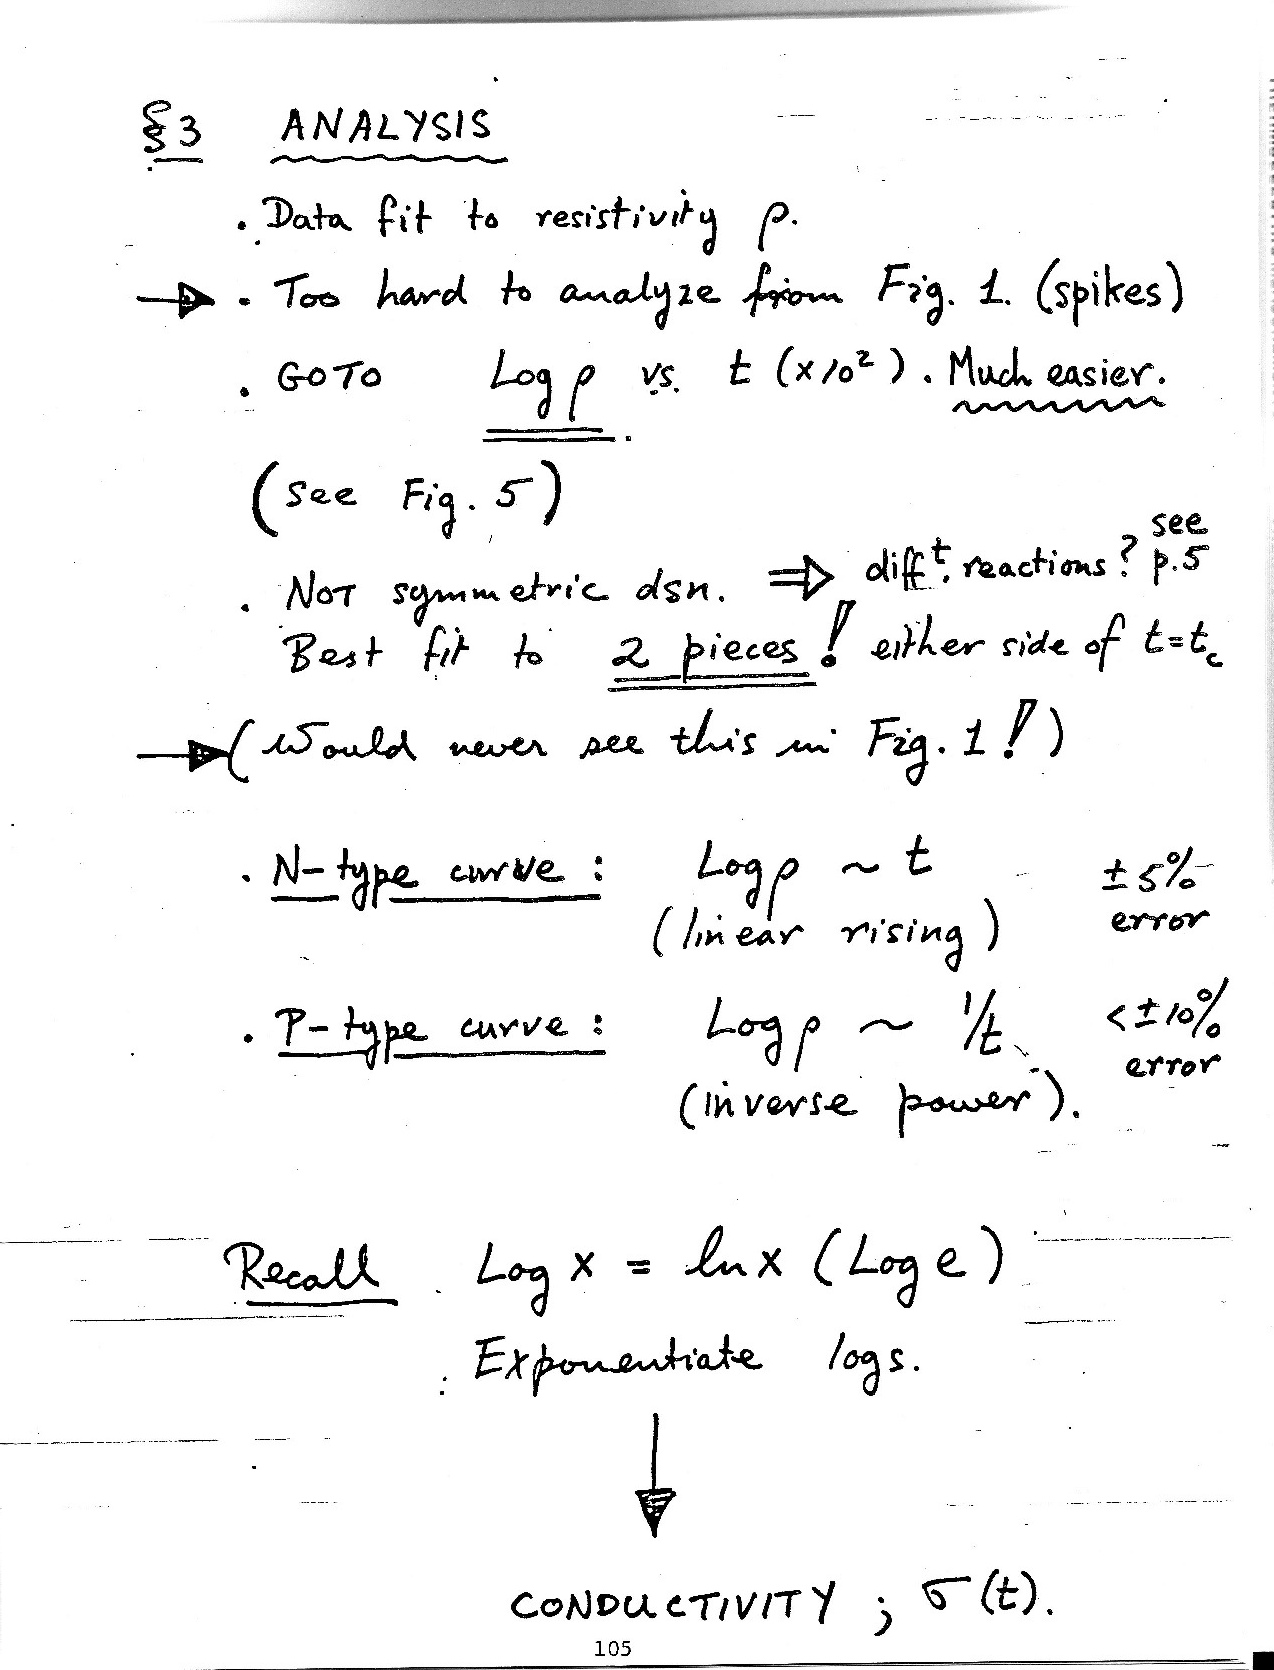 §3 ANALYSIS
. Data fit to resistivity ρ.
. Too hard to analyze from Fig. 1. (spikes)
. GOTO Log ρ vs. t (x10²). Much easier.
(see Fig. 5)
. NOT symmetric dsn. ⇒ diffᵗ. reactions? see p.5
Best fit to 2 pieces! either side of t=t_c
(Would never see this in Fig. 1!)
. N-type curve: Log ρ ~ t ±5%
(linear rising) error
. P-type curve: Log ρ ~ 1/t <±10%
(inverse power). error
Recall Log x = ln x (Log e)
Exponentiate logs.
CONDUCTIVITY ; σ(t).
105